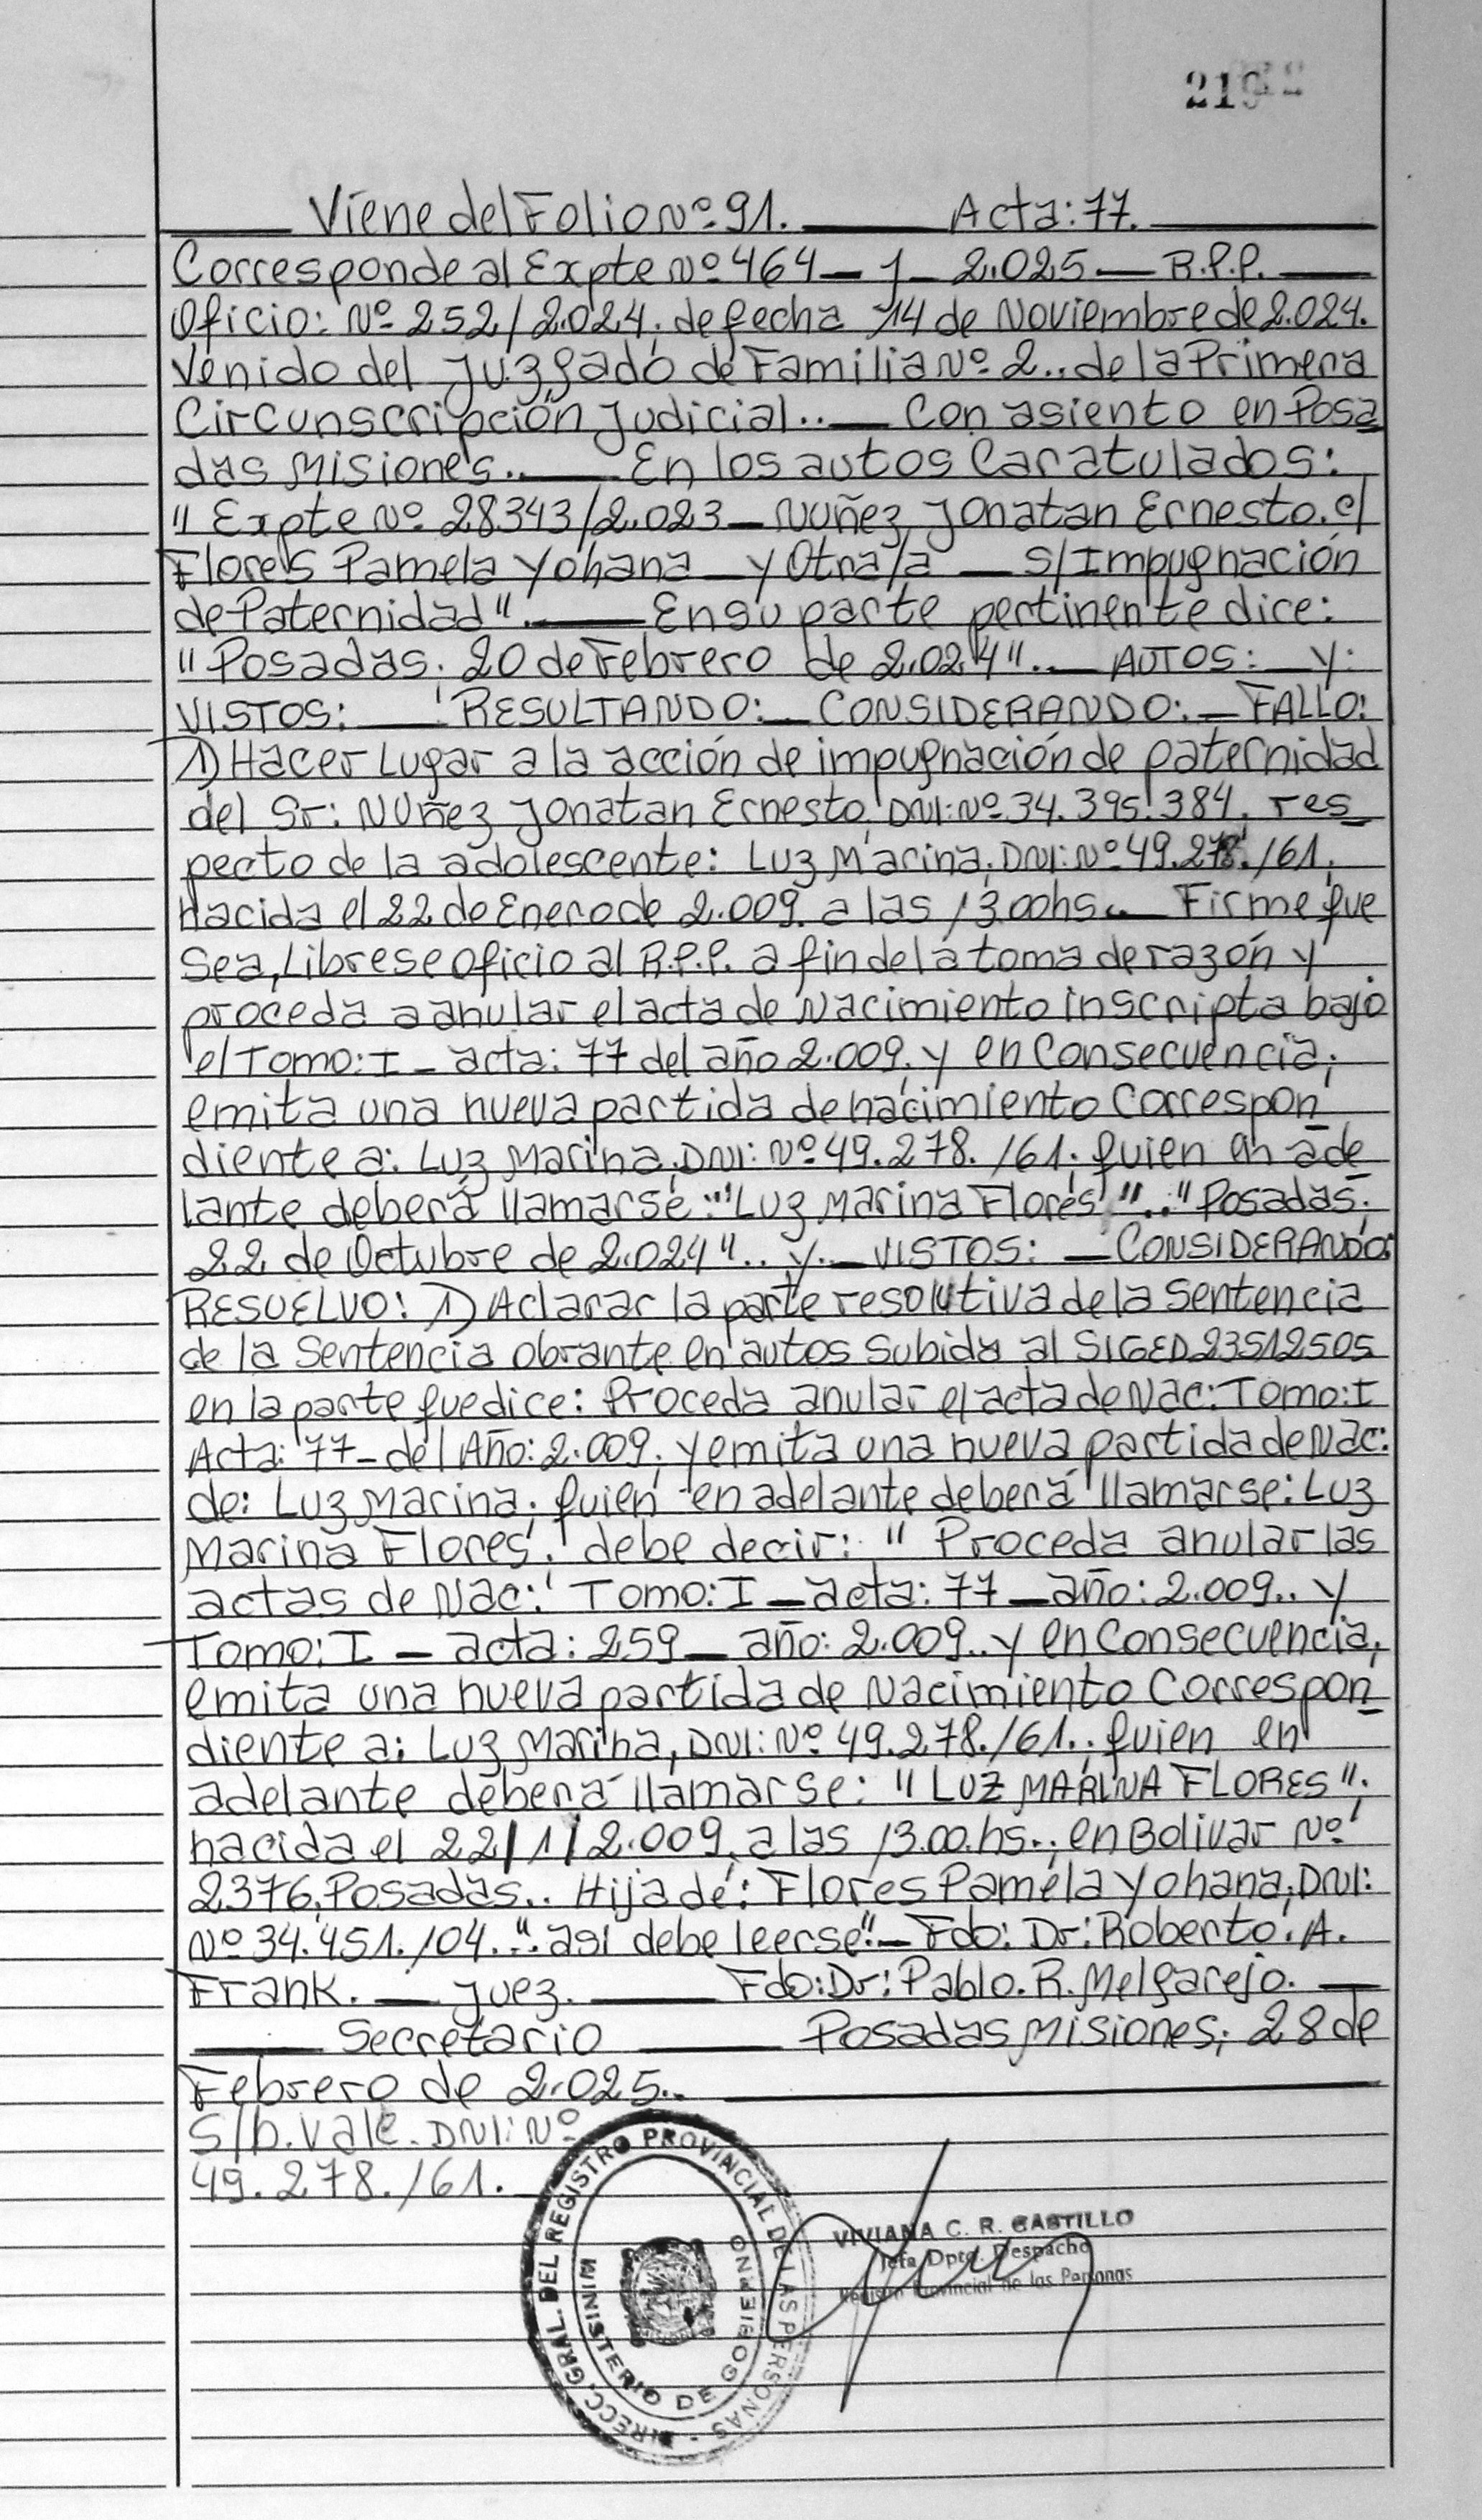 219
Viene del Folio Nº 91. Acta: 77.
Corresponde al Expte Nº 464 - 1 - 2.025 — R.P.P.
Oficio: Nº 252/2.024, de fecha 14 de Noviembre de 2.024.
Venido del Juzgado de Familia Nº 2.. de la Primera
Circunscripción Judicial.. — Con asiento en Posa
das Misiones.. — En los autos Caratulados:
"Expte Nº 28343/2.023 — Nuñez Jonatan Ernesto. c/
Flores Pamela Yohana y Otra/a — s/Impugnación
de Paternidad". — En su parte pertinente dice:
"Posadas, 20 de Febrero de 2.024".. — AUTOS: — Y:
VISTOS: — RESULTANDO: — CONSIDERANDO: — FALLO:
1) Hacer Lugar a la acción de impugnación de paternidad
del Sr: Nuñez Jonatan Ernesto, DNI: Nº 34.395.384, res
pecto de la adolescente: Luz Marina, DNI: Nº 49.278./61,
nacida el 22 de Enero de 2.009. a las 13.00hs.. — Firme que
Sea, Librese oficio al R.P.P. a fin de la toma de razón y
proceda a anular el acta de Nacimiento inscripta bajo
el Tomo: I - acta: 77 del año 2.009, y en Consecuencia,
emita una nueva partida de nacimiento Correspon
diente a: Luz Marina, DNI: Nº 49.278./61, quien en ade
lante deberá llamarse: "Luz Marina Flores".. "Posadas,
22 de Octubre de 2.024".. y — VISTOS: — CONSIDERANDO:
RESUELVO: 1) Aclarar la parte resolutiva de la Sentencia
de la Sentencia obrante en autos Subida al SIGED 23512505
en la parte que dice: Proceda anular el acta de Nac: Tomo: I
Acta: 77 - del Año: 2.009, y emita una nueva partida de Nac:
de: Luz Marina, quien en adelante deberá llamarse: Luz
Marina Flores, debe decir: "Proceda anular las
actas de Nac: Tomo: I — acta: 77 — año: 2.009.. y
Tomo: I — acta: 259 — año: 2.009.. y en Consecuencia,
emita una nueva partida de Nacimiento Correspon
diente a: Luz Marina, DNI: Nº 49.278./61.. quien en
adelante deberá llamarse: "LUZ MARINA FLORES",
nacida el 22/1/2.009, a las 13.00.hs.. en Bolivar Nº
2376, Posadas.. Hija de: Flores Pamela Yohana, DNI:
Nº 34.451./04.". asi debe leerse" — Fdo: Dr: Roberto. A.
Frank. — Juez. — Fdo: Dr: Pablo. R. Melgarejo. —
— Secretario — Posadas Misiones, 28 de
Febrero de 2.025..
S/b. Vale. DNI: Nº
49.278./61.
DIRECC. GRAL. DEL REGISTRO PROVINCIAL DE LAS PERSONAS
MINISTERIO DE GOBIERNO
VIVIANA C. R. CASTILLO
Jefa Dpto. Despacho
Registro Provincial de las Personas